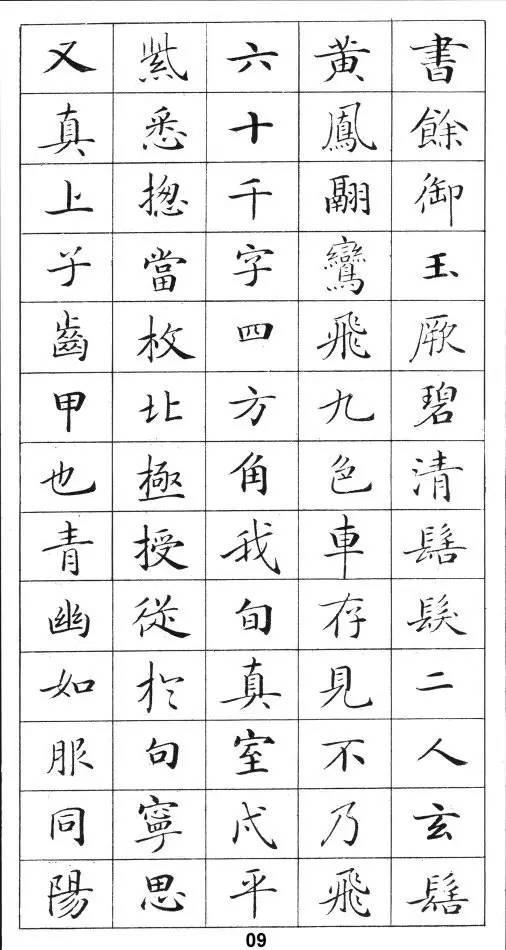 書餘御玉厥碧清鬍髮二人玄鬍
黃鳳翮鸞飛九色車存見不乃飛
六十千字四方角我旬真室戌平
紫悉揔當枚北極授從於句寧思
又真上子齒甲也青幽如服同陽
09